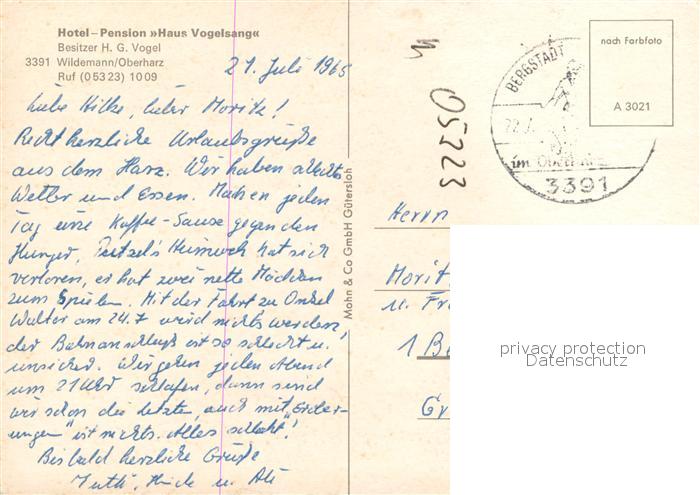 Hotel-Pension »Haus Vogelsang«
Besitzer H. G. Vogel
3391 Wildemann/Oberharz
Ruf (05323) 1009
21. Juli 1965
Liebe Hilke, lieber Moritz!
Recht herzliche Urlaubsgrüße
aus dem Harz. Wir haben schlechtes
Wetter und Essen. Machen jeden
Tag eine Kaffee-Sause gegen den
Hunger. Heimweh hat sich
verloren, er hat zwei nette Mädchen
zum Spielen. Mit der Fahrt zu Onkel
Walter am 24.7 wird nichts werden,
der Bahnanschluß ist so schlecht u.
unsicher. Wir gehen jeden Abend
um 21 Uhr schlafen, dann sind
wir schon die letzten, auch mit
ist nichts. Alles schläft!
Bis bald herzliche Grüße
u.
Mohn & Co GmbH Gütersloh
05323
BERGSTADT
22.7.
im Oberharz
3391
nach Farbfoto
A 3021
Herrn
Morit
u. Fr
1 Be
G
privacy protection
Datenschutz